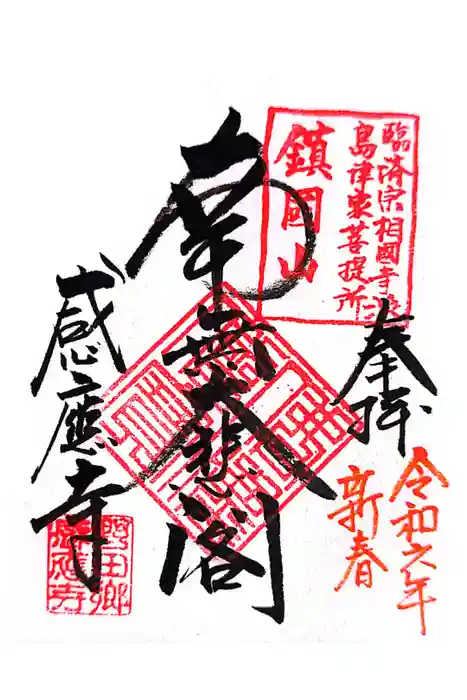 臨済宗相國寺派
島津家菩提所
鎮國山
奉拝
令和六年
新春
南無大悲閣
感應寺
野田郷
感應寺